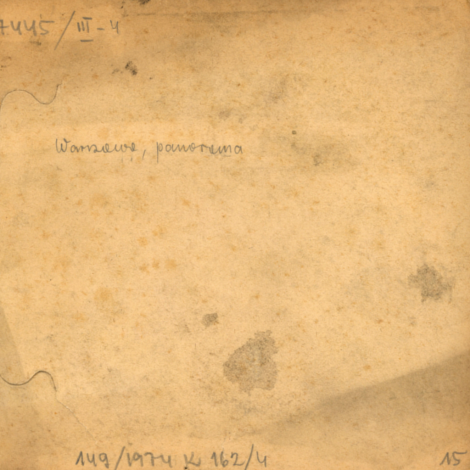 7445/III-4
Warszawa, panorama
149/1974 K 162/4
15